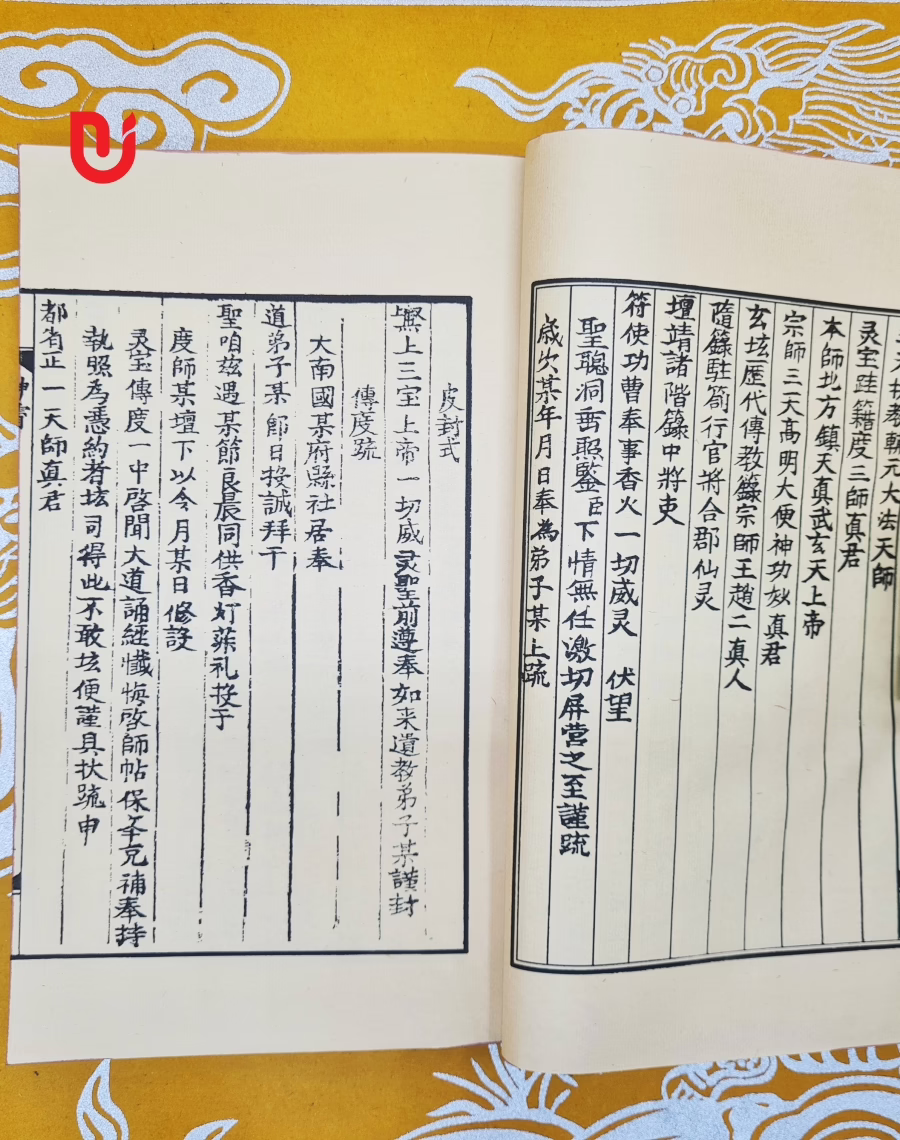 灵宝𨹟籍度三師真君
本師北方鎮天真武玄天上帝
宗師三天高明大使神功妙真君
玄坛歷代傳教籙宗師王趙二真人
隋籙駐箚行官將合郡仙灵
壇靖諸階籙中將吏
符使功曹奉事香火一切威灵 伏望
聖聰洞垂照鑒臣下情無任激切屏营之至謹疏
歲次某年月日奉為弟子某上疏
皮封式
無上三宝上帝一切威灵聖前遵奉如来遺教弟子某謹封
傳度疏
大南國某府縣社居奉
道弟子某即日投誠拜干
聖咱兹遇某節良晨同供香灯菜礼投于
度師某壇下以今月某日修設
灵宝傳度一中啓聞大道誦經懺悔啓師帖保本充補奉持
執照為憑約者坛司得此不敢坛便謹具状疏申
都省正一天師真君